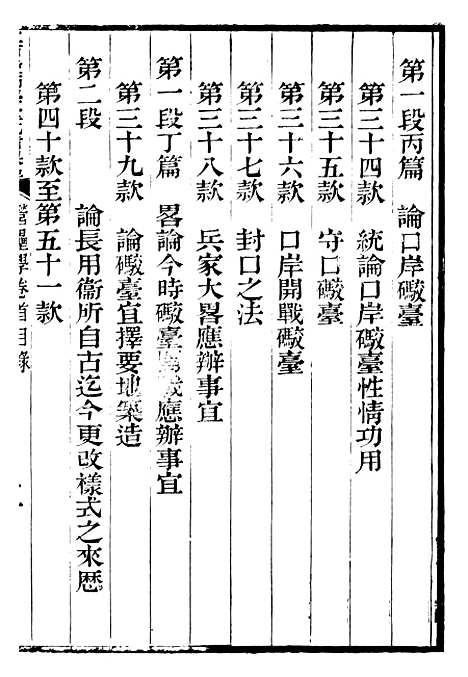 第一段丙篇　論口岸礮臺
第三十四款　統論口岸礮臺性情功用
第三十五款　守口礮臺
第三十六款　口岸開戰礮臺
第三十七款　封口之法
第三十八款　兵家大畧應辦事宜
第一段丁篇　畧論今時礮臺戰應辦事宜
第三十九款　論礮臺宜擇要地築造
第二段　論長用衞所自古迄今更改樣式之來歷
第四十款至第五十一款
營壘學卷首目錄